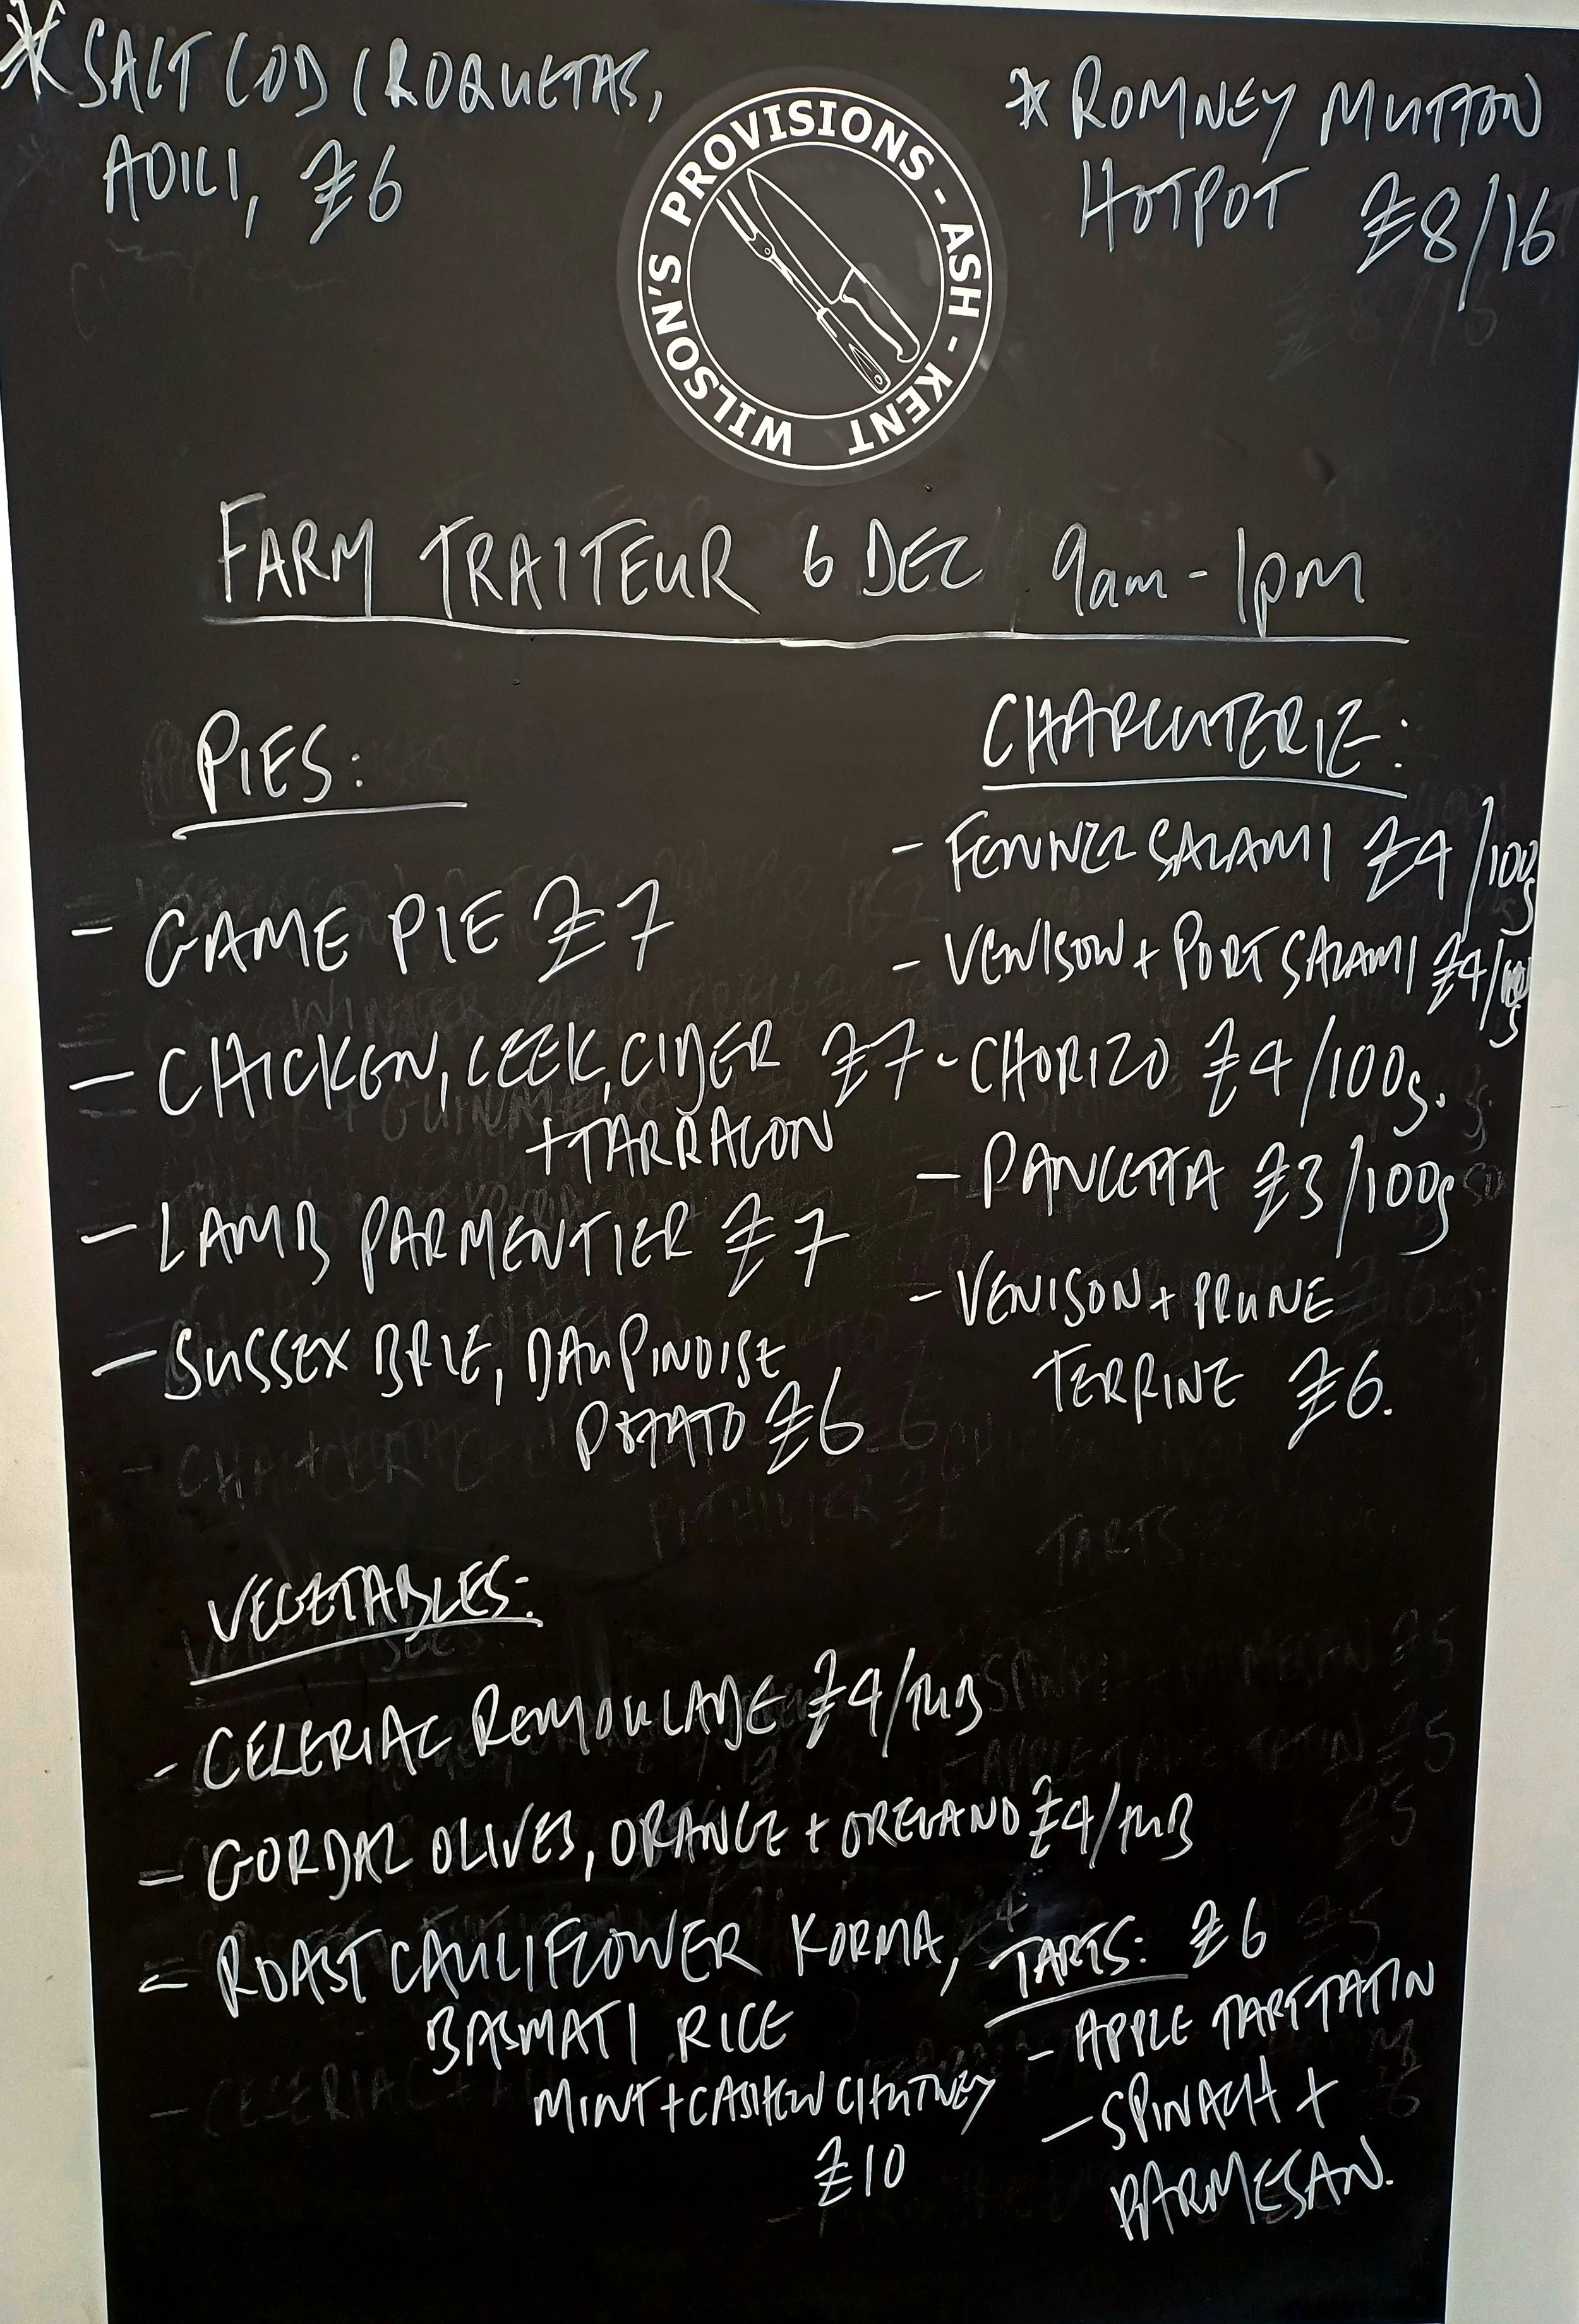 * SALT COD CROQUETAS,
AOILI, £6
* ROMNEY MUTTON
HOTPOT £8/16
WILSON'S PROVISIONS - ASH - KENT
FARM TRAITEUR 6 DEC 9am - 1pm
PIES:
- GAME PIE £7
- CHICKEN, LEEK, CIDER £7
+ TARRAGON
- LAMB PARMENTIER £7
- SUSSEX BRIE, DAUPINOISE
POTATO £6
CHARCUTERIE:
- FENNEL SALAMI £4/100g
- VENISON + PORT SALAMI £4/100g
- CHORIZO £4/100g.
- PANCETTA £3/100g
- VENISON + PRUNE
TERRINE £6.
VEGETABLES:
- CELERIAC REMOULADE £4/TUB
- GORDAL OLIVES, ORANGE + OREGANO £4/TUB
- ROAST CAULIFLOWER KORMA,
BASMATI RICE
MINT + CASHEW CHUTNEY
£10
TARTS: £6
- APPLE TART TATIN
- SPINACH +
PARMESAN.